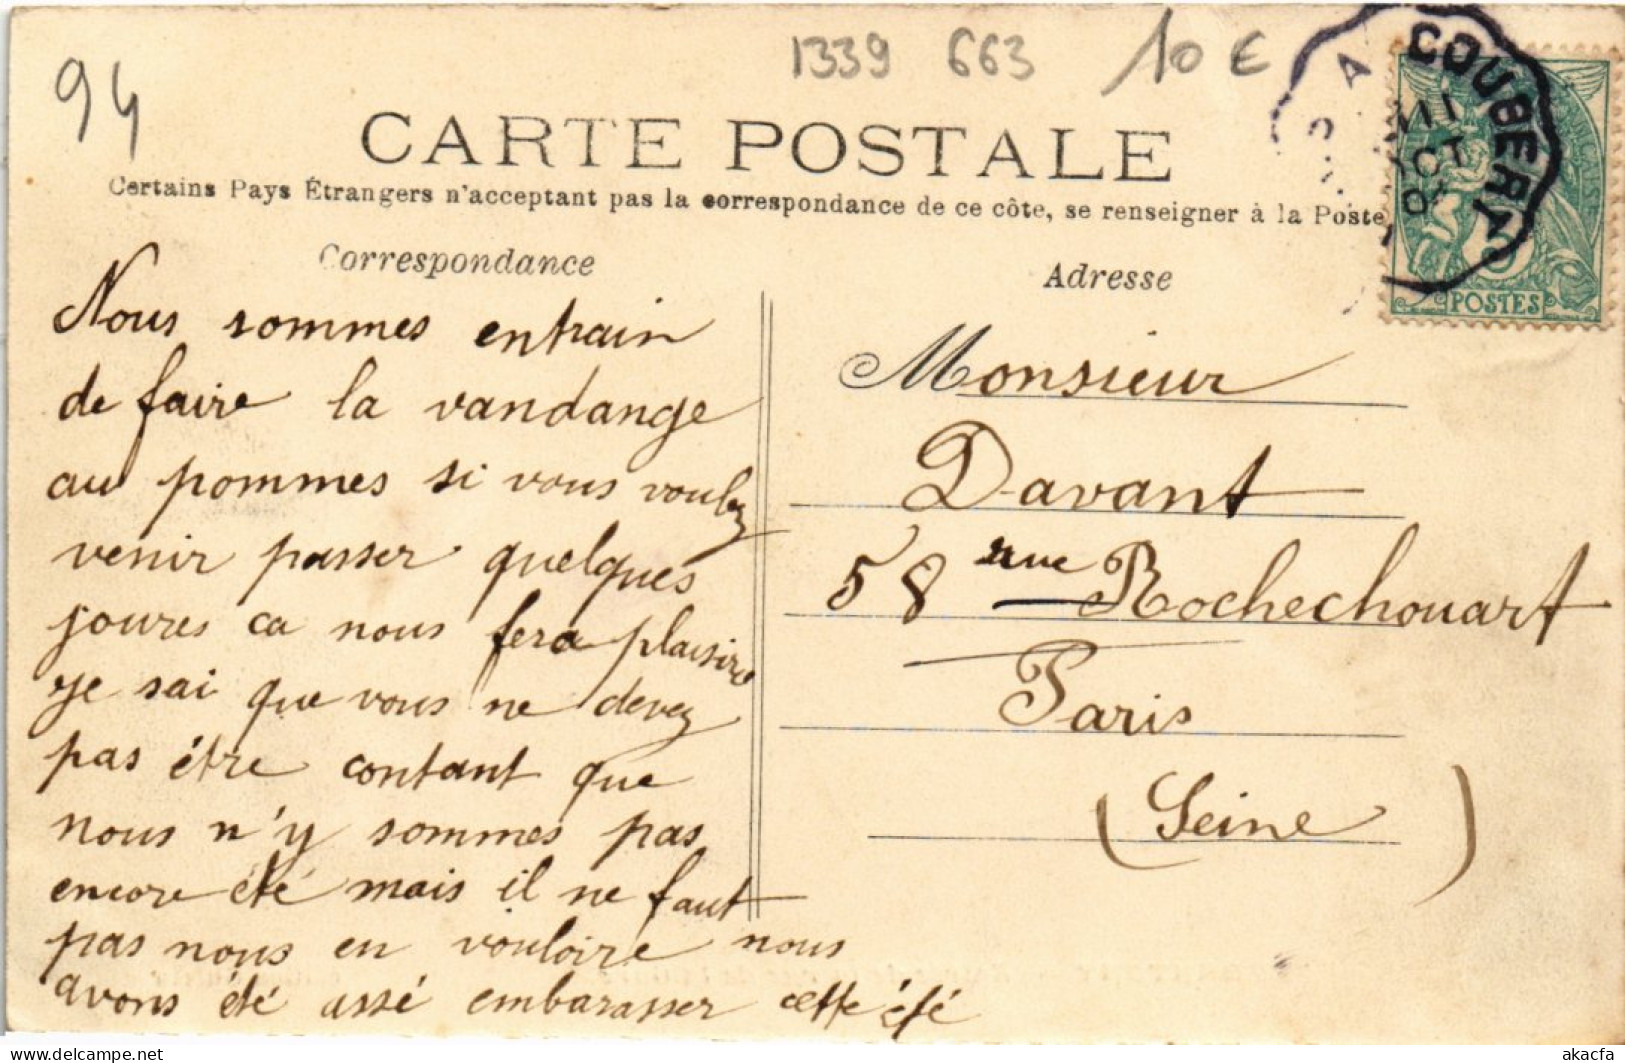 94
1339 663 10 €
CARTE POSTALE
Certains Pays Étrangers n'acceptant pas la correspondance de ce côte, se renseigner à la Poste
Correspondance
Nous sommes entrain
de faire la vandange
au pommes si vous voulez
venir passer quelques
joures ca nous fera plaisire
je sai que vous ne devez
pas être contant que
nous n'y sommes pas
encore été mais il ne faut
pas nous en vouloire nous
avons été assé embarasser cette été
Adresse
Monsieur
Davant
58 rue Rochechouart
Paris
(Seine)
A COUBERT
OCT
POSTES
delcampe.net
akacfa